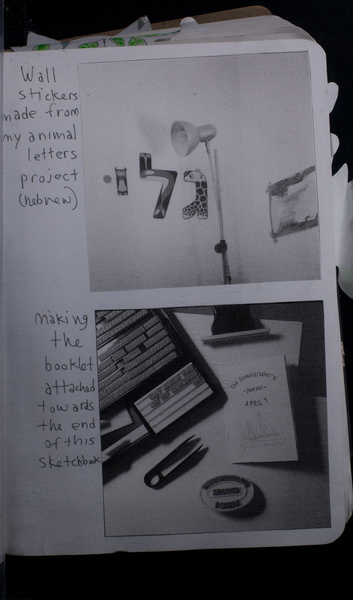 Wall
stickers
made from
my animal
letters
project
(hebrew)
making
the
booklet
attached
towards
the end
of this
sketchbook
The Oceanographer's
Journal
APRIL 9